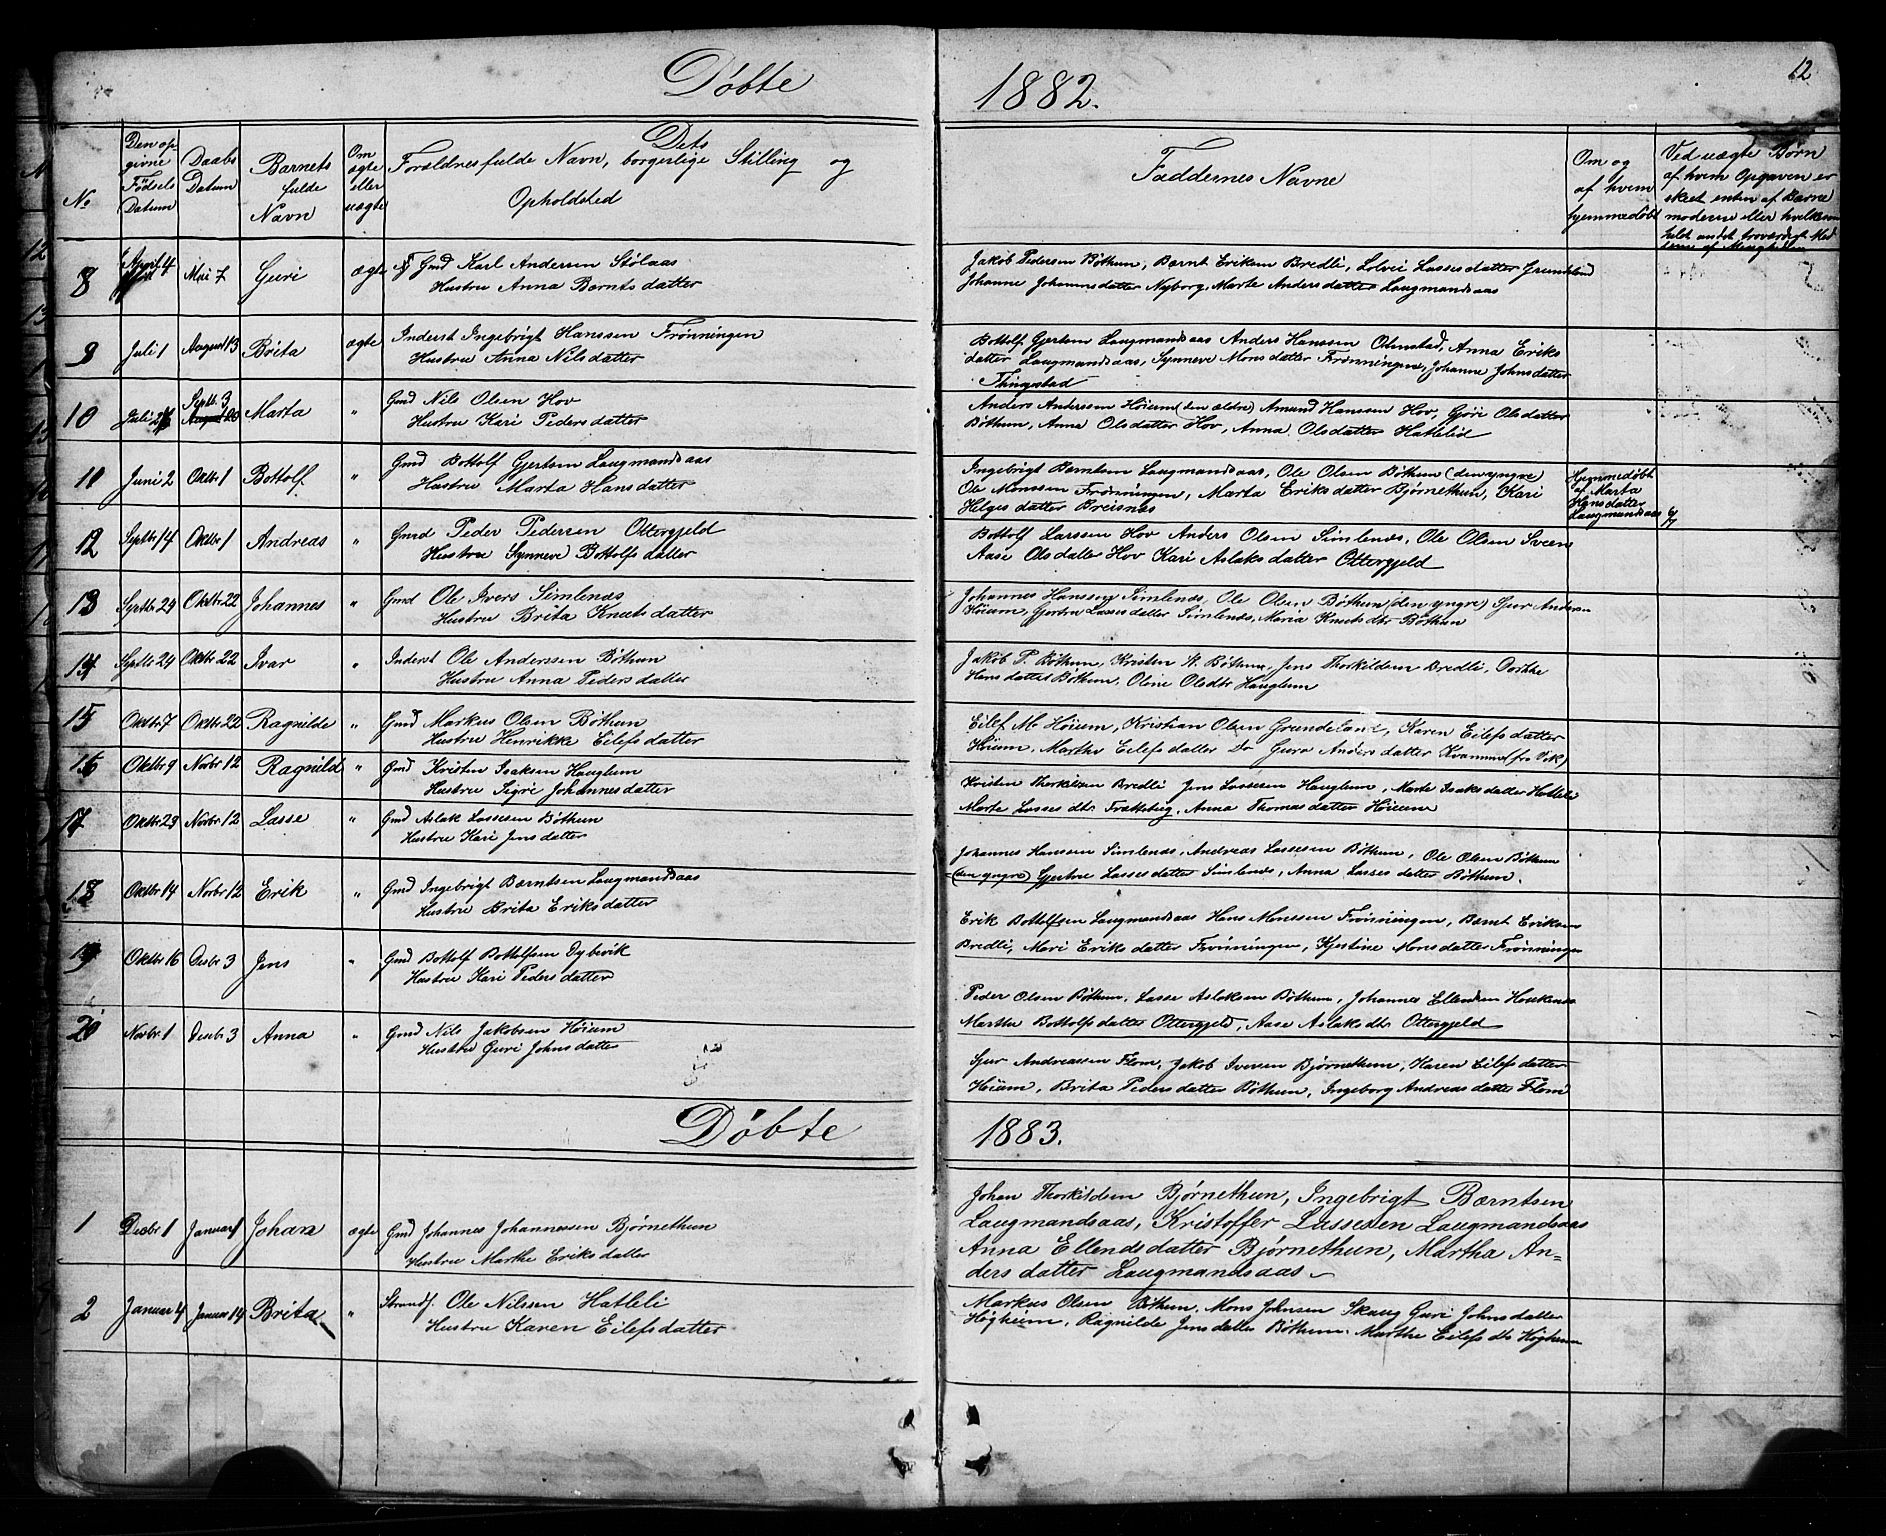 Døbte
1882.
12
No
Den op
givne
Fødsels
Datum
Daabs
Datum
Barnets
fulde
Navn
Om
ægte
eller
uægte
Dets
Forældres fulde Navn, borgerlige Stilling og
Opholdsted
Faddernes Navne
Om og
af hvem
hjemmedøbt
Ved uægte Børn
af hvem Opgaven er
skeet enten af Barne
moderen eller hvilkesom
helst andet troværdigt Med
lem af Menigheden
8 April 4 Mai 7 Guri ægte Gmd Karl Andersen Stølaas
Hustru Anna Berntsdatter
Jakob Pedersen Bøthun, Bernt Eriksen Bredli, Lolvei Lassesdatter Grundeland
Johanne Johannesdatter Nyborg, Marte Andersdatter Laugmandsaas
9 Juli 1 August 13 Brita ægte Inderst Ingebrigt Hanssen Frønningen
Hustru Anna Nilsdatter
Bottolf Gjertsen Laugmandsaas Anders Hanssen Olmstad, Anna Eriks
datter Laugmandsaas, Synneve Monsdatter Frønningen, Johanne Johnsdatter
Thingstad
10 Juli 26 Septb. 3 August 20 Marta " Gmd Nils Olsen Hov
Hustru Kari Pedersdatter
Anders Anderssen Høium (den ældre) Amund Hanssen Hov, Gjøri Olsdatter
Bøthun, Anna Olsdatter Hov, Anna Olsdatter Hatlelid
11 Juni 2 Oktbr 1 Bottolf " Gmd Bottolf Gjertsen Laugmandsaas
Hustru Marta Hansdatter
Ingebrigt Berntsen Laugmandsaas, Ole Olsen Bøthun (den yngre)
Ole Monssen Frønningen, Marta Eriksdatter Bjørnethun, Kari
Helgesdatter Breisnes
Hjemmedøbt
af Marta
Hansdatter
Laugmandsaas 6/7
12 Septbr 14 Oktbr 1 Andreas " Gmd Peder Pedersen Ottergjeld
Hustru Synneve Bottolfsdatter
Bottolf Larssen Hov Anders Olsen Simlenæs, Ole Olsen Sveen
Aase Olsdatter Hov Kari Aslaksdatter Ottergjeld
13 Septbr 29 Oktbr 22 Johannes " Gmd Ole Ivers Simlenæs
Hustru Brita Knutsdatter
Johannes Hanssen Simlenæs, Ole Olsen Bøthun (den yngre) Sjur Anders
Høium, Gjertru Lassesdatter Simlenæs, Maria Knutsdtr Bøthun
14 Septbr 24 Oktbr 22 Ivar " Inderst Ole Anderssen Bøthun
Hustru Anna Pedersdatter
Jakob P. Bøthun, Kristen K. Bøthun, Jens Thorkildsen Bredli, Dorthe
Hansdatter Bøthun, Oline Olsdtr Hauglum
15 Oktbr 7 Oktbr 22 Ragnilde " Gmd Markus Olsen Bøthun
Hustru Henrikke Eilefsdatter
Eilef M. Høium, Kristian Olsen Grundeland, Karen Eilefsdatter
Høium, Martha Eilefsdatter Do Guro Andersdatter Kvamme (fra Vik)
16 Oktbr 9 Novbr 12 Ragnild " Gmd Kristen Isaksen Hauglum
Hustru Sigri Johannesdatter
Kristen Thorkilsen Bredli Jens Lassesen Hauglum, Marte Isaksdatter Hatleli
Marte Lassesdtr Frætteteig, Anna Thomasdatter Høium
17 Oktbr 29 Novbr 12 Lasse " Gmd Aslak Lassesen Bøthun
Hustru Kari Jensdatter
Johannes Hanssen Simlenæs, Andreas Lassesen Bøthun, Ole Olsen Bøthun
(den yngre) Gjertrue Lassesdatter Simlenæs, Anna Lassesdatter Bøthun.
18 Oktbr 14 Novbr 12 Erik " Gmd Ingebrigt Berntsen Laugmandsaas
Hustru Brita Eriksdatter
Erik Bottolfsen Laugmandsaas Hans Monssen Frønningen, Bernt Eriksen
Bredli, Mari Eriksdatter Frønningen, Kjestine Monsdatter Frønningen
19 Oktbr 16 Desbr 3 Jens " Gmd Bottolf Bottolfsen Dybevik
Hustru Kari Pedersdatter
Peder Olsen Bøthun, Lasse Aslaksen Bøthun, Johannes Ellendsen Haukenæs
Martha Bottolfsdatter Ottergjeld, Aase Aslaksdtr Ottergjeld
20 Novbr 1 Desbr 3 Anna " Gmd Nils Jakobsen Høium
Hustru Guri Johnsdatter
Sjur Andreassen Flom, Jakob Iversen Bjørnethun, Karen Eilefsdatter
Høium, Brita Pedersdatter Bøthun, Ingeborg Andreasdatter Flom
Døbte
1883.
1 Desbr 1 Januar 1 Johan ægte Gmd Johannes Johannessen Bjørnethun
Hustru Marthe Eriksdatter
Johan Thorkildsen Bjørnethun, Ingebrigt Berntsen
Laugmandsaas, Kristoffer Lassesen Laugmandsaas
Anna Ellendsdatter Bjørnethun, Martha An=
dersdatter Laugmandsaas
2 Januar 4 Januar 14 Brita " Strands. Ole Nilssen Hatleli
Hustru Karen Eilefsdatter
Markus Olsen Bøthun, Mons Johnsen Skaug Guri Johnsdatter
Høgheim, Ragnilde Jensdatter Bøthun Marthe Eilefsdtr Høgheim